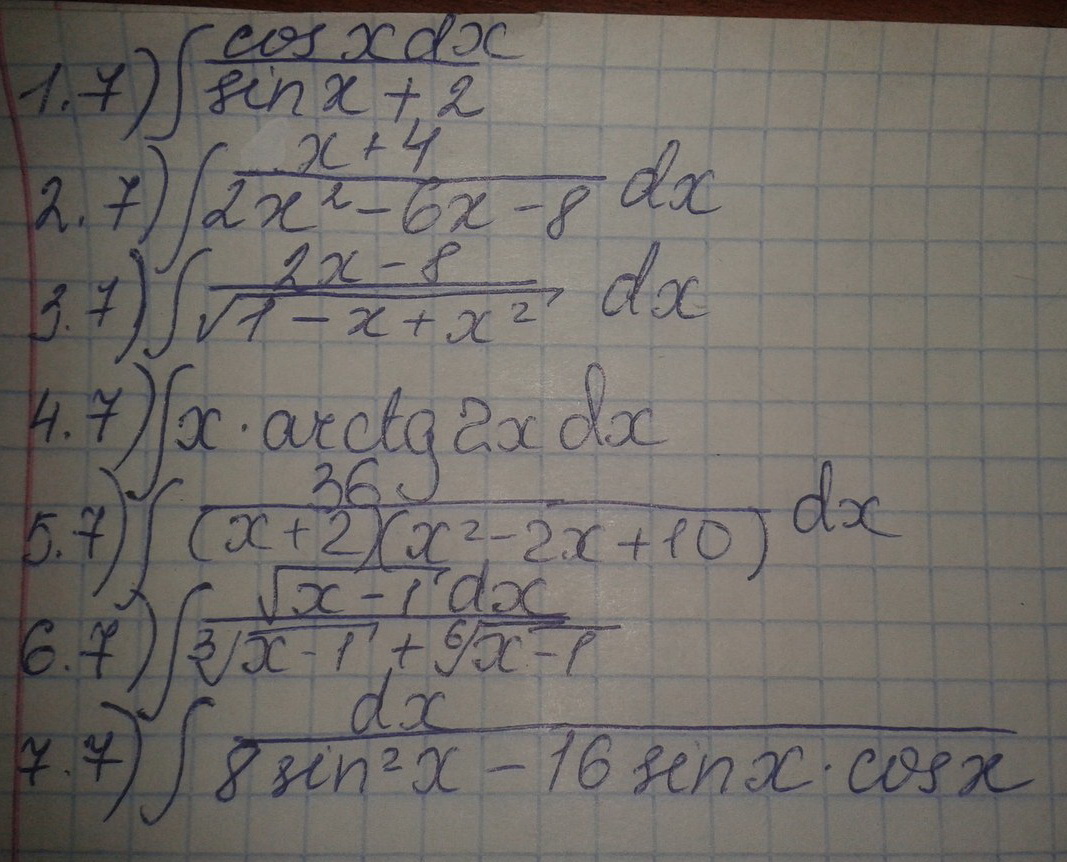 1.7) ∫ cos x dx / sin x + 2
2.7) ∫ x + 4 / 2x² - 6x - 8 dx
3.7) ∫ 2x - 8 / √1 - x + x² dx
4.7) ∫ x · arctg 2x dx
5.7) ∫ 36 / (x + 2)(x² - 2x + 10) dx
6.7) ∫ √x - 1 dx / ∛x - 1 + ⁶√x - 1
7.7) ∫ dx / 8 sin² x - 16 sin x · cos x